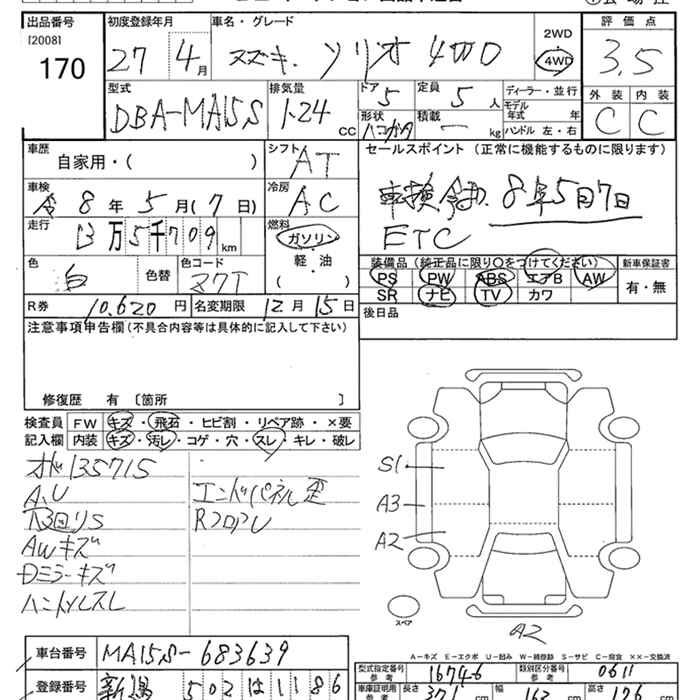 出品番号 初度登録年月 車名・グレード 評価点
[2008]
170 27 4月 スズキ ソリオ 4WD 2WD 4WD 3.5
型式 排気量 ドア 定員 ディーラー・並行 外装 内装
DBA-MA15S 1.24 cc 5 5人 モデル年式 年 C C
形状 積載 ー kg ハンドル 左・右
車歴 シフト セールスポイント (正常に機能するものに限ります)
自家用・( ) AT
車検 冷房 車検 令和 8年5月7日
令 8年 5月(7日) AC ETC
走行 燃料
13万5千709km ガソリン
軽・油
( )
色 色替 色コード
白 Z7T
装備品 (純正品に限り○をつけてください) 新車保証書
PS PW ABS エアB AW 有・無
SR ナビ TV カワ
R券 10,620円 名変期限 12月15日
後日品
注意事項申告欄(不具合内容等は具体的に記入して下さい)
修復歴 有 [箇所 ]
検査員 FW キズ・飛石・ヒビ割・リペア跡・×要
記入欄 内装 キズ・汚レ・コゲ・穴・スレ・キレ・破レ
135715
A,U エンドパネル歪
RフロアU
AWキズ
Dミラーキズ
S1
A3
A2
スペア
A2
A-キズ E-エクボ U-凹み W-補修跡 S-サビ C-腐食 ××-交換済
車台番号 MA15S-683639
型式指定番号 参考 16746 類別区分番号 参考 0611
登録番号 新潟 502 は 1186
車庫証明用 参考 長さ 371 cm 幅 162 cm 高さ